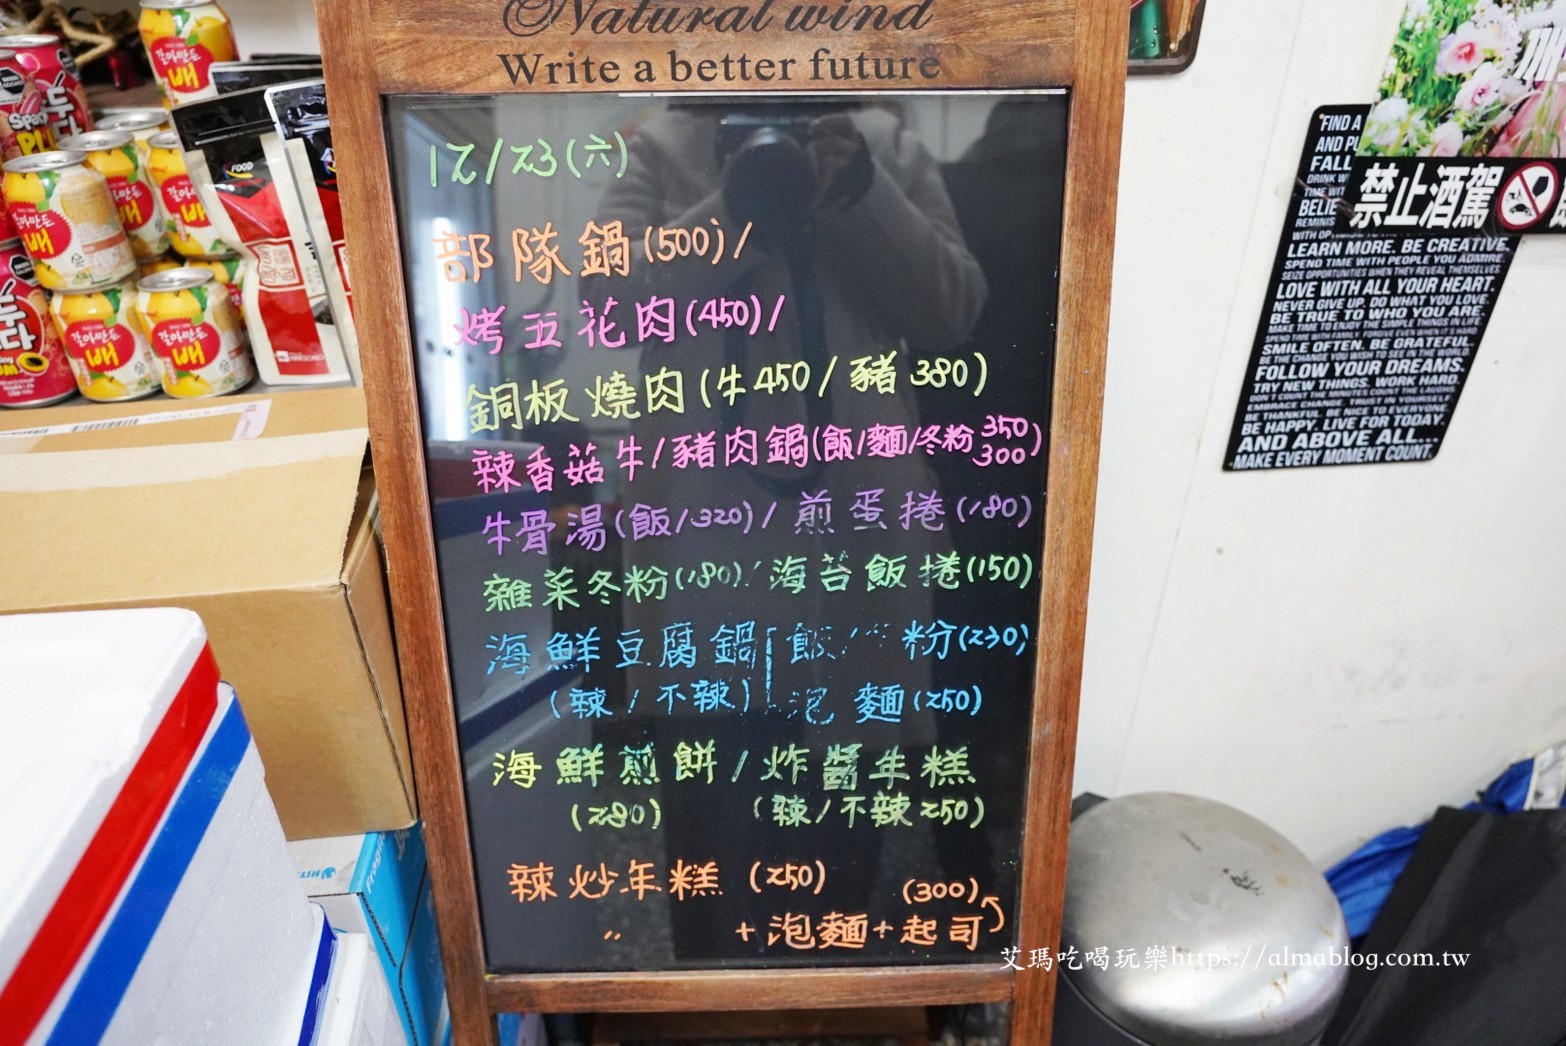 Natural wind
Write a better future
12/23(六)
部隊鍋(500)/
烤五花肉(450)/
銅板燒肉(牛450/豬380)
辣香菇牛/豬肉鍋(飯/麵/冬粉 350 300)
牛骨湯(飯/320)/煎蛋捲(180)
雜菜冬粉(180)/海苔飯捲(150)
海鮮豆腐鍋 飯/ 粉(230)
(辣/不辣) 泡麵(250)
海鮮煎餅/炸醬年糕
(280) (辣/不辣250)
辣炒年糕 (250) (300)
〃 +泡麵+起司
갈아만든
배
갈아만든
배
갈아만든
배
갈아만든
배
FOOD
禁止酒駕
FIND A
FALL
LEARN MORE. BE CREATIVE.
SPEND TIME WITH PEOPLE YOU ADMIRE.
SEIZE OPPORTUNITIES WHEN THEY REVEAL THEMSELVES.
LOVE WITH ALL YOUR HEART.
NEVER GIVE UP. DO WHAT YOU LOVE.
BE TRUE TO WHO YOU ARE.
MAKE TIME TO ENJOY THE SIMPLE THINGS IN LIFE
SMILE OFTEN. BE GRATEFUL.
FOLLOW YOUR DREAMS.
TRY NEW THINGS. WORK HARD.
BE THANKFUL. BE NICE TO EVERYONE.
BE HAPPY. LIVE FOR TODAY.
AND ABOVE ALL...
MAKE EVERY MOMENT COUNT.
艾瑪吃喝玩樂https://almablog.com.tw